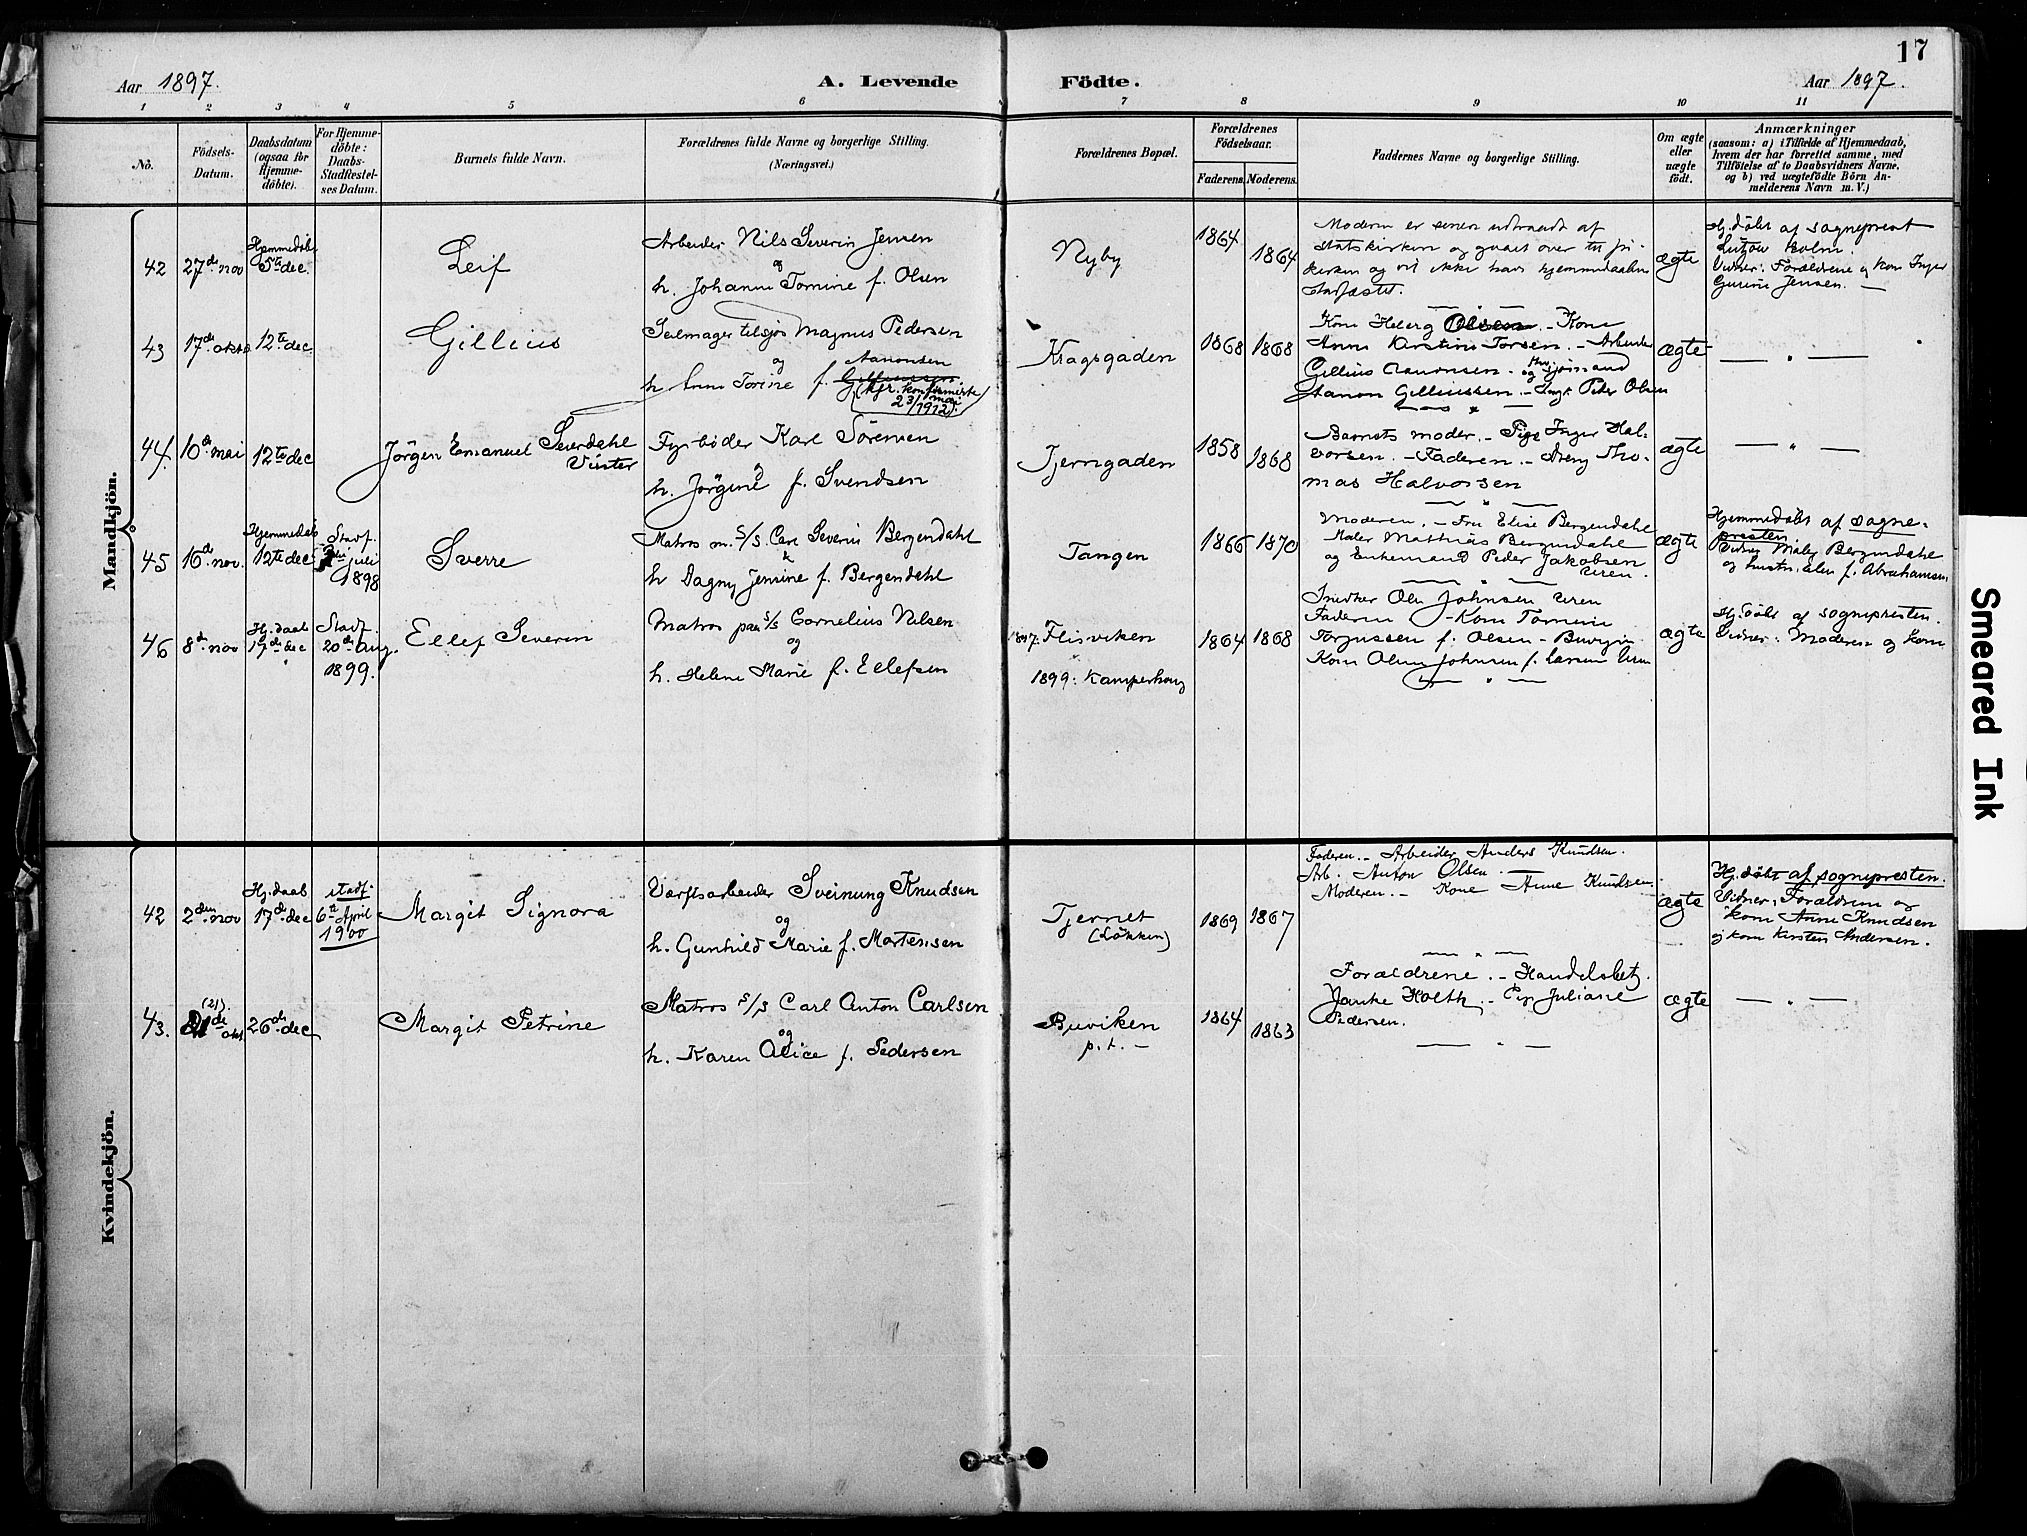 17
Aar 1897.
A. Levende Födte.
Aar 1897.
1 2 3 4 5 6 7 8 9 10 11
No.
Födsels-
Datum.
Daabsdatum
(ogsaa for
Hjemme-
döbte).
For Hjemme-
döbte:
Daabs-
Stadfæstel-
ses Datum.
Barnets fulde Navn.
Forældrenes fulde Navne og borgerlige Stilling.
(Næringsvei.)
Forældrenes Bopæl.
Forældrenes
Födselsaar.
Faderens. Moderens.
Faddernes Navne og borgerlige Stilling.
Om ægte
eller
uægte
födt.
Anmærkninger
(saasom: a) i Tilfælde af Hjemmedaab,
hvem der har forrettet samme, med
Tilföielse af to Daabsvidners Navne,
og b) ved uægtefödte Börn An-
melderens Navn m. V.)
Mandkjön.
42 27de nov
Hjemmedöbt
5te dec.
Leif
Arbeider Nils Severin Jensen
og
h. Johanne Tomine f. Olsen
Nyby
1864 1864
Moderen er senere udtraadt af
Statskirken og gaaet over til fri-
kirken og vil ikke have hjemmedaaben
stadfæstet.
ægte
Hj. döbt af sognepræst
Lützow Holm.
Vidner: Forældrene og kone Inger
Gurine Jensen. —
43 17de okto 12te dec.
Gillius
Seilmager tilsjøs Magnus Pedersen
og
h. Anne Torine f. Gilliussen
Aanonsen
(kfr. konfirmerte
23/ mai 1912).
Kragsgaden
1868 1868
Kone Helberg Olsen. - Kone
Anne Kirstine Torsen. - Arbeider
Gellius Aanonsen. og Sjömand
Aanon Gelliussen. - Ungk. Peder Olsen
ægte
— " —
44. 10de mai 12te dec
Jörgen Emanuel Severdahl
Vinter
Fyrböder Karl Sörensen
og
h. Jörgine f. Svendsen
Tjerngaden
1858 1868
Barnets moder. - Pige Inger Hal-
vorsen. - Faderen. - Dreng Tho-
mas Halvorsen
ægte
— " —
45 16de nov.
Hjemmedöbt
12te dec
Stadf.
juli
1898
Sverre
Matros m. S/S. Carl Severin Bergendahl
h Dagny Jensine f. Bergendahl
Tangen
1866 1870
Moderen. - Fru Elise Bergendahl
Maler Matthias Bergendahl
og Enkemand Peder Jakobsen
Uren.
ægte
Hjemmedöbt af sogne-
presten
Vidner Maler Bergendahl
og hustru, Elen f. Abrahamsen
46 8de nov
Hj. daab
17de dec
Stadf.
20de aug.
1899.
Ellef Severin
Matros paa S/S Cornelius Nilsen
og
h. Helene Marie f. Ellefsen
1897. Flisviken
1899: Kamperhaug
1864 1868
Snedker Ole Johnsen Uren
Faderen - Kone Tomine
Torjussen f. Olsen - Buvigen
Kone Oline Johnsen f. Larsen Uren
ægte
Hj. döbt af sognepresten.
Vidner: Moderen og kone
Kvindekjön.
42 2den nov
Hj. daab
17de dec
stadf.
6te April
1900
Margit Signora
Værftsarbeider Sveinung Knudsen
og
h. Gunhild Marie f. Mortensen
Tjernet
(Lökken)
1869 1867
Faderen. - Arbeider Anders Knudsen.
Arb. Anton Olsen. —
Moderen. - Kone Anne Knudsen.
ægte
Hj. döbt af sognepresten.
Vidner: Forældrene og
kone Anne Knudsen
og kone Kirsten Andersen.
43. (21)
21de okt. 26de dec
Margit Petrine
Matros S/S Carl Anton Carlsen
og
h. Karen Alice f. Pedersen
Buviken
p. t. —
1864 1863
Forældrene. - Handelsbet.
Holth - Pige Juliane
Pedersen.
ægte
— " —
Smeared Ink